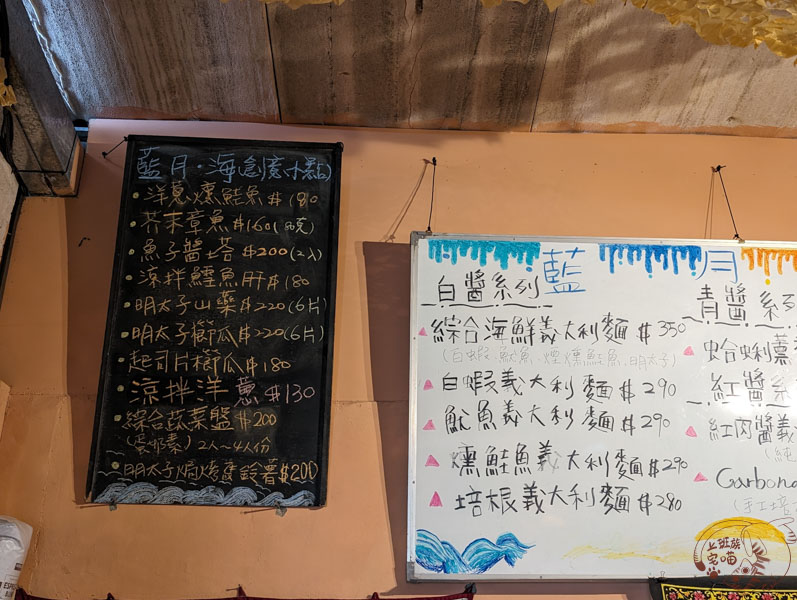 藍月・海創意小點
洋蔥燻鮭魚 $180
芥末章魚 $160(80克)
魚子醬塔 $200(2入)
涼拌鱈魚肝 $180
明太子山藥 $220(6片)
明太子櫛瓜 $220(6片)
起司片櫛瓜 $180
涼拌洋蔥 $130
綜合蔬菜盤 $200
(蛋奶素)2人~4人份
明太子焗烤馬鈴薯 $200
藍 月
白醬系列
綜合海鮮義大利麵 $350
(白蝦、魷魚、煙燻鮭魚、明太子)
白蝦義大利麵 $290
魷魚義大利麵 $290
燻鮭魚義大利麵 $290
培根義大利麵 $280
青醬系
蛤蜊
紅醬系
紅肉醬義
(純
Carbona
(手工培
上班族
宅喵